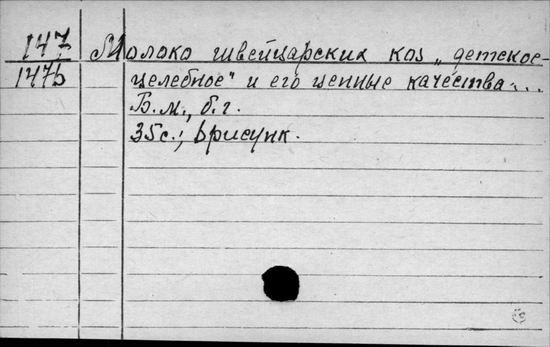 147
1475
Молоко швейцарских коз „детское-
целебное" и его ценные качества...
Б.м., б.г.
35с.; 6рисунк.